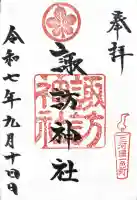 奉拝
諏訪神社
諏訪神社
令和七年九月十四日